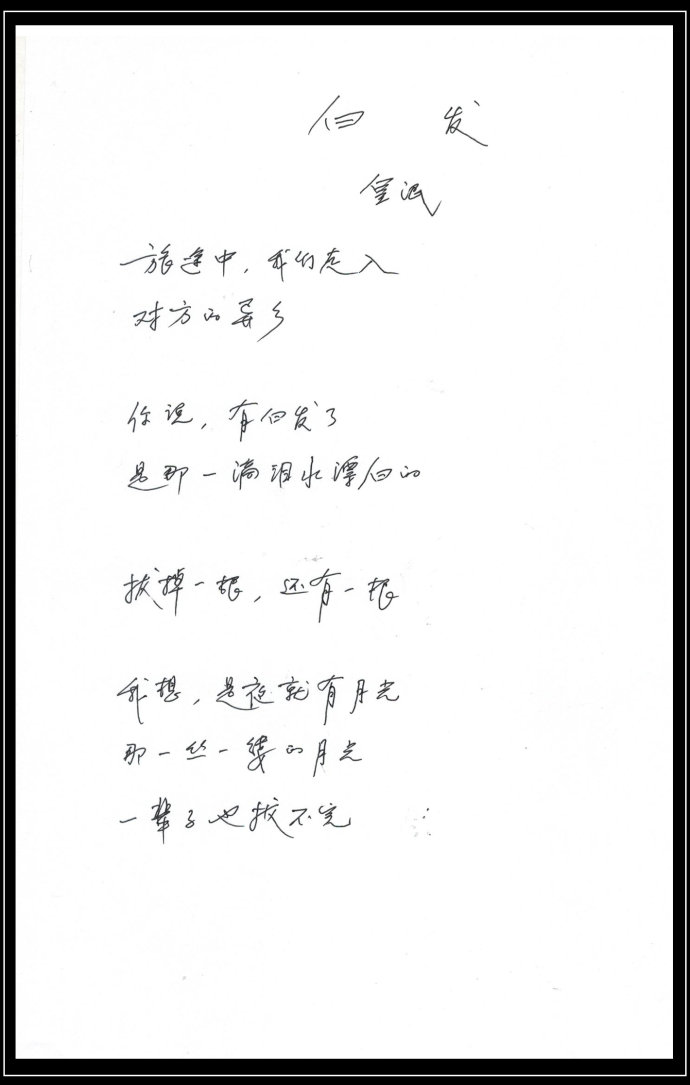 白 发
皇泯
旅途中，我们走入
对方的异乡
你说，有白发了
是那一滴泪水漂白的
拔掉一根，还有一根
我想，是夜就有月光
那一丝一缕的月光
一辈子也拔不完